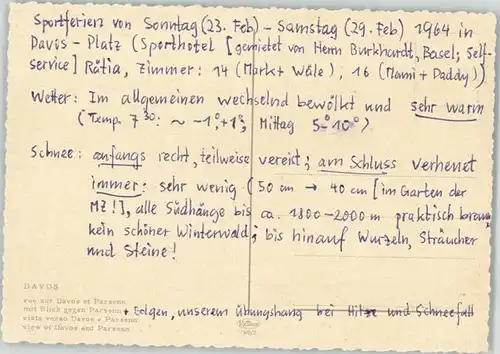 Sportferien von Sonntag (23. Feb) - Samstag (29. Feb) 1964 in
Davos - Platz (Sporthotel [gemietet von Herrn Burkhardt, Basel; Self-
service] Rätia, Zimmer: 14 (Markt Wäle); 16 (Mami + Daddy))
Wetter: Im allgemeinen wechselnd bewölkt und sehr warm
(Temp. 7 30: ~ -1°, +1°, Mittag 5-10°)
Schnee: anfangs recht, teilweise vereist; am Schluss
immer: sehr wenig (50 cm → 40 cm [im Garten der
MZ!], alle Südhänge bis ca. 1800-2000 m praktisch braun,
kein schöner Winterwald; bis hinauf Wurzeln, Sträucher
und Steine!
DAVOS
vue sur Davos et Parsenn
mit Blick gegen Parsenn
vista verso Davos e Parsenn
view of Davos and Parsenn
+ Edgen, unserem Übungshang bei Hitze und Schneefall